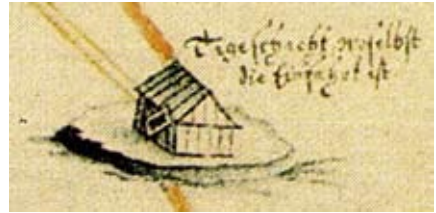 Tageschacht woselbst
die Einfahrt ist